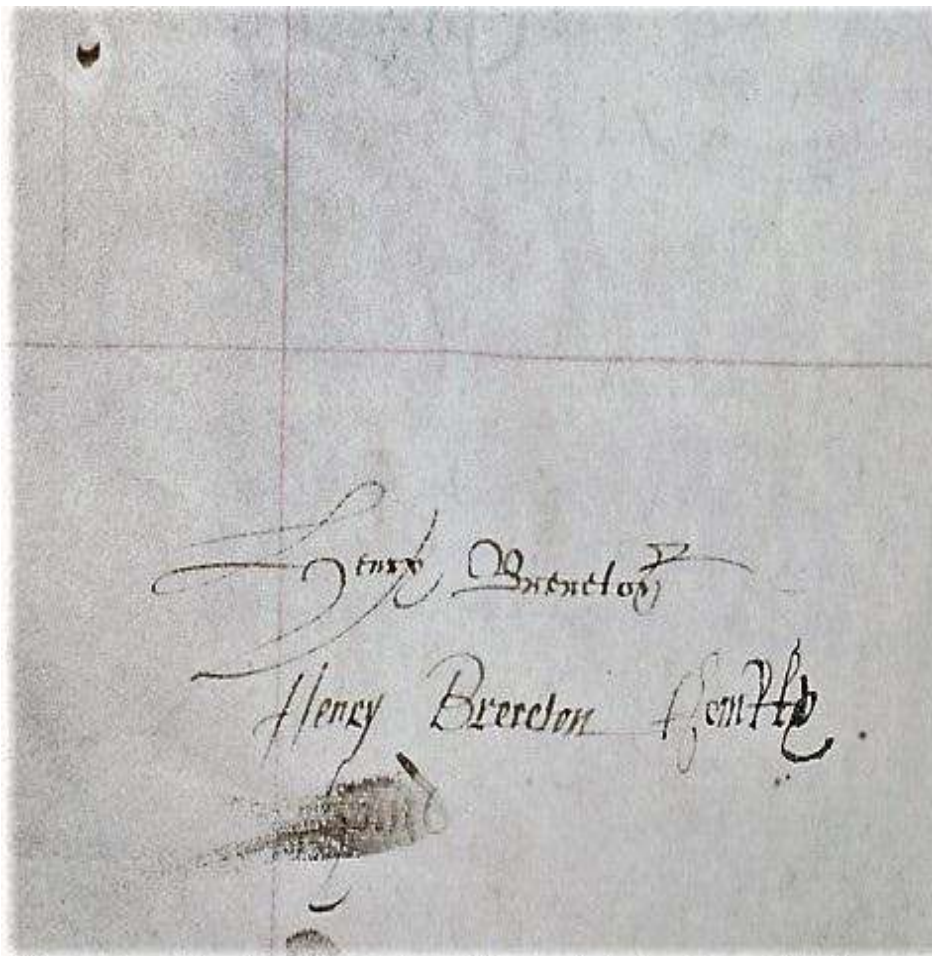 Henry Brereton
Henry Brereton